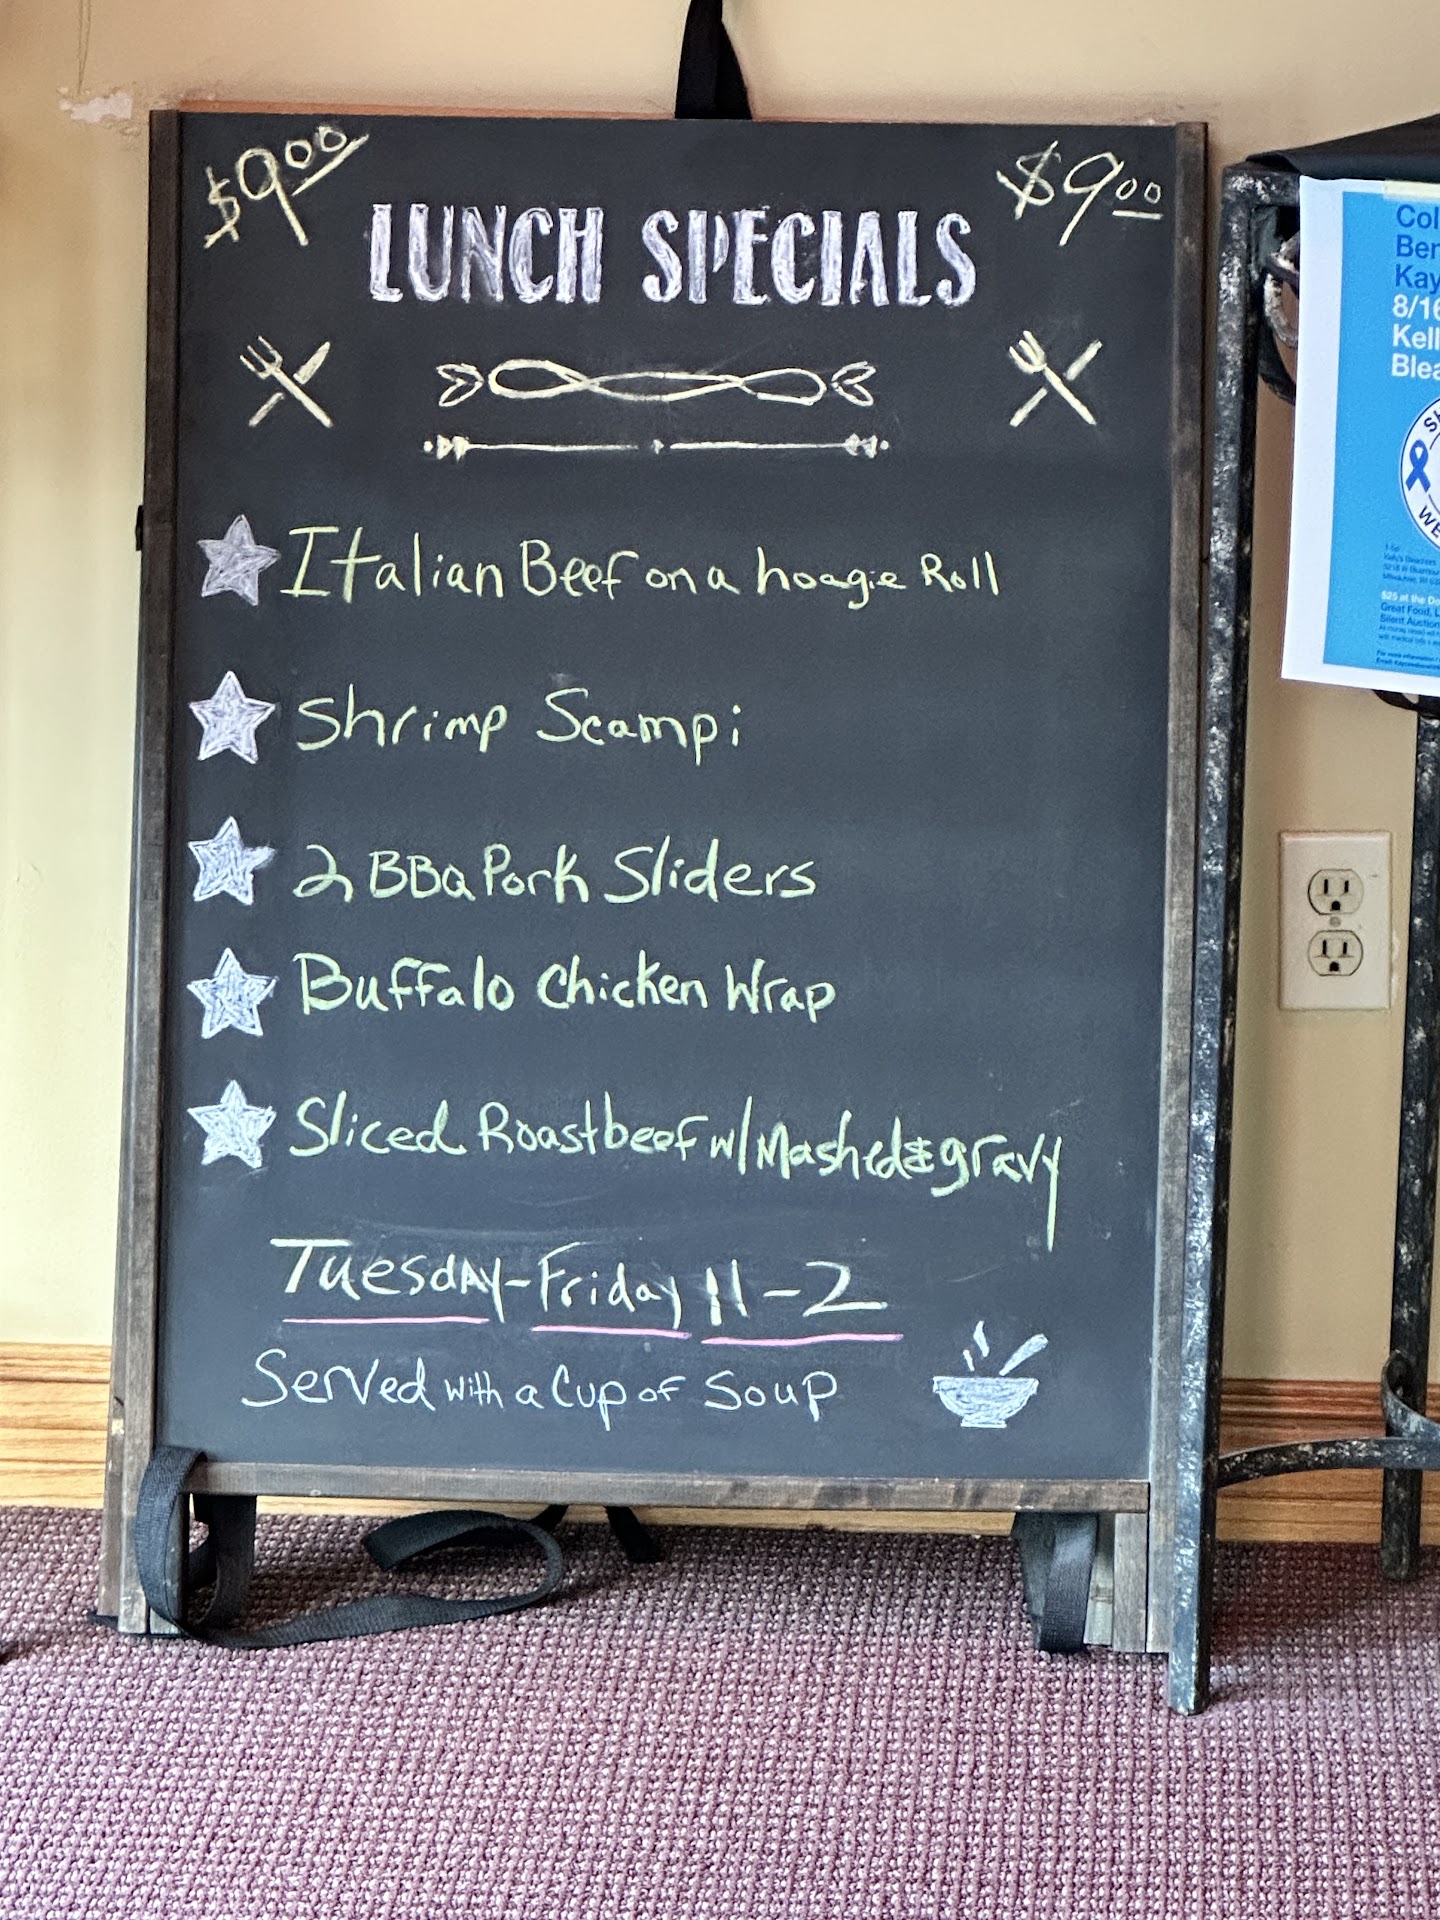 $9.00
$9.00
LUNCH SPECIALS
Italian Beef on a hoagie Roll
Shrimp Scampi
2 BBQ Pork Sliders
Buffalo Chicken Wrap
Sliced Roastbeef w/Mashed & gravy
Tuesday-Friday 11-2
Served with a Cup of Soup
8/16
$25 at the Do
Great Food, L
Silent Auction